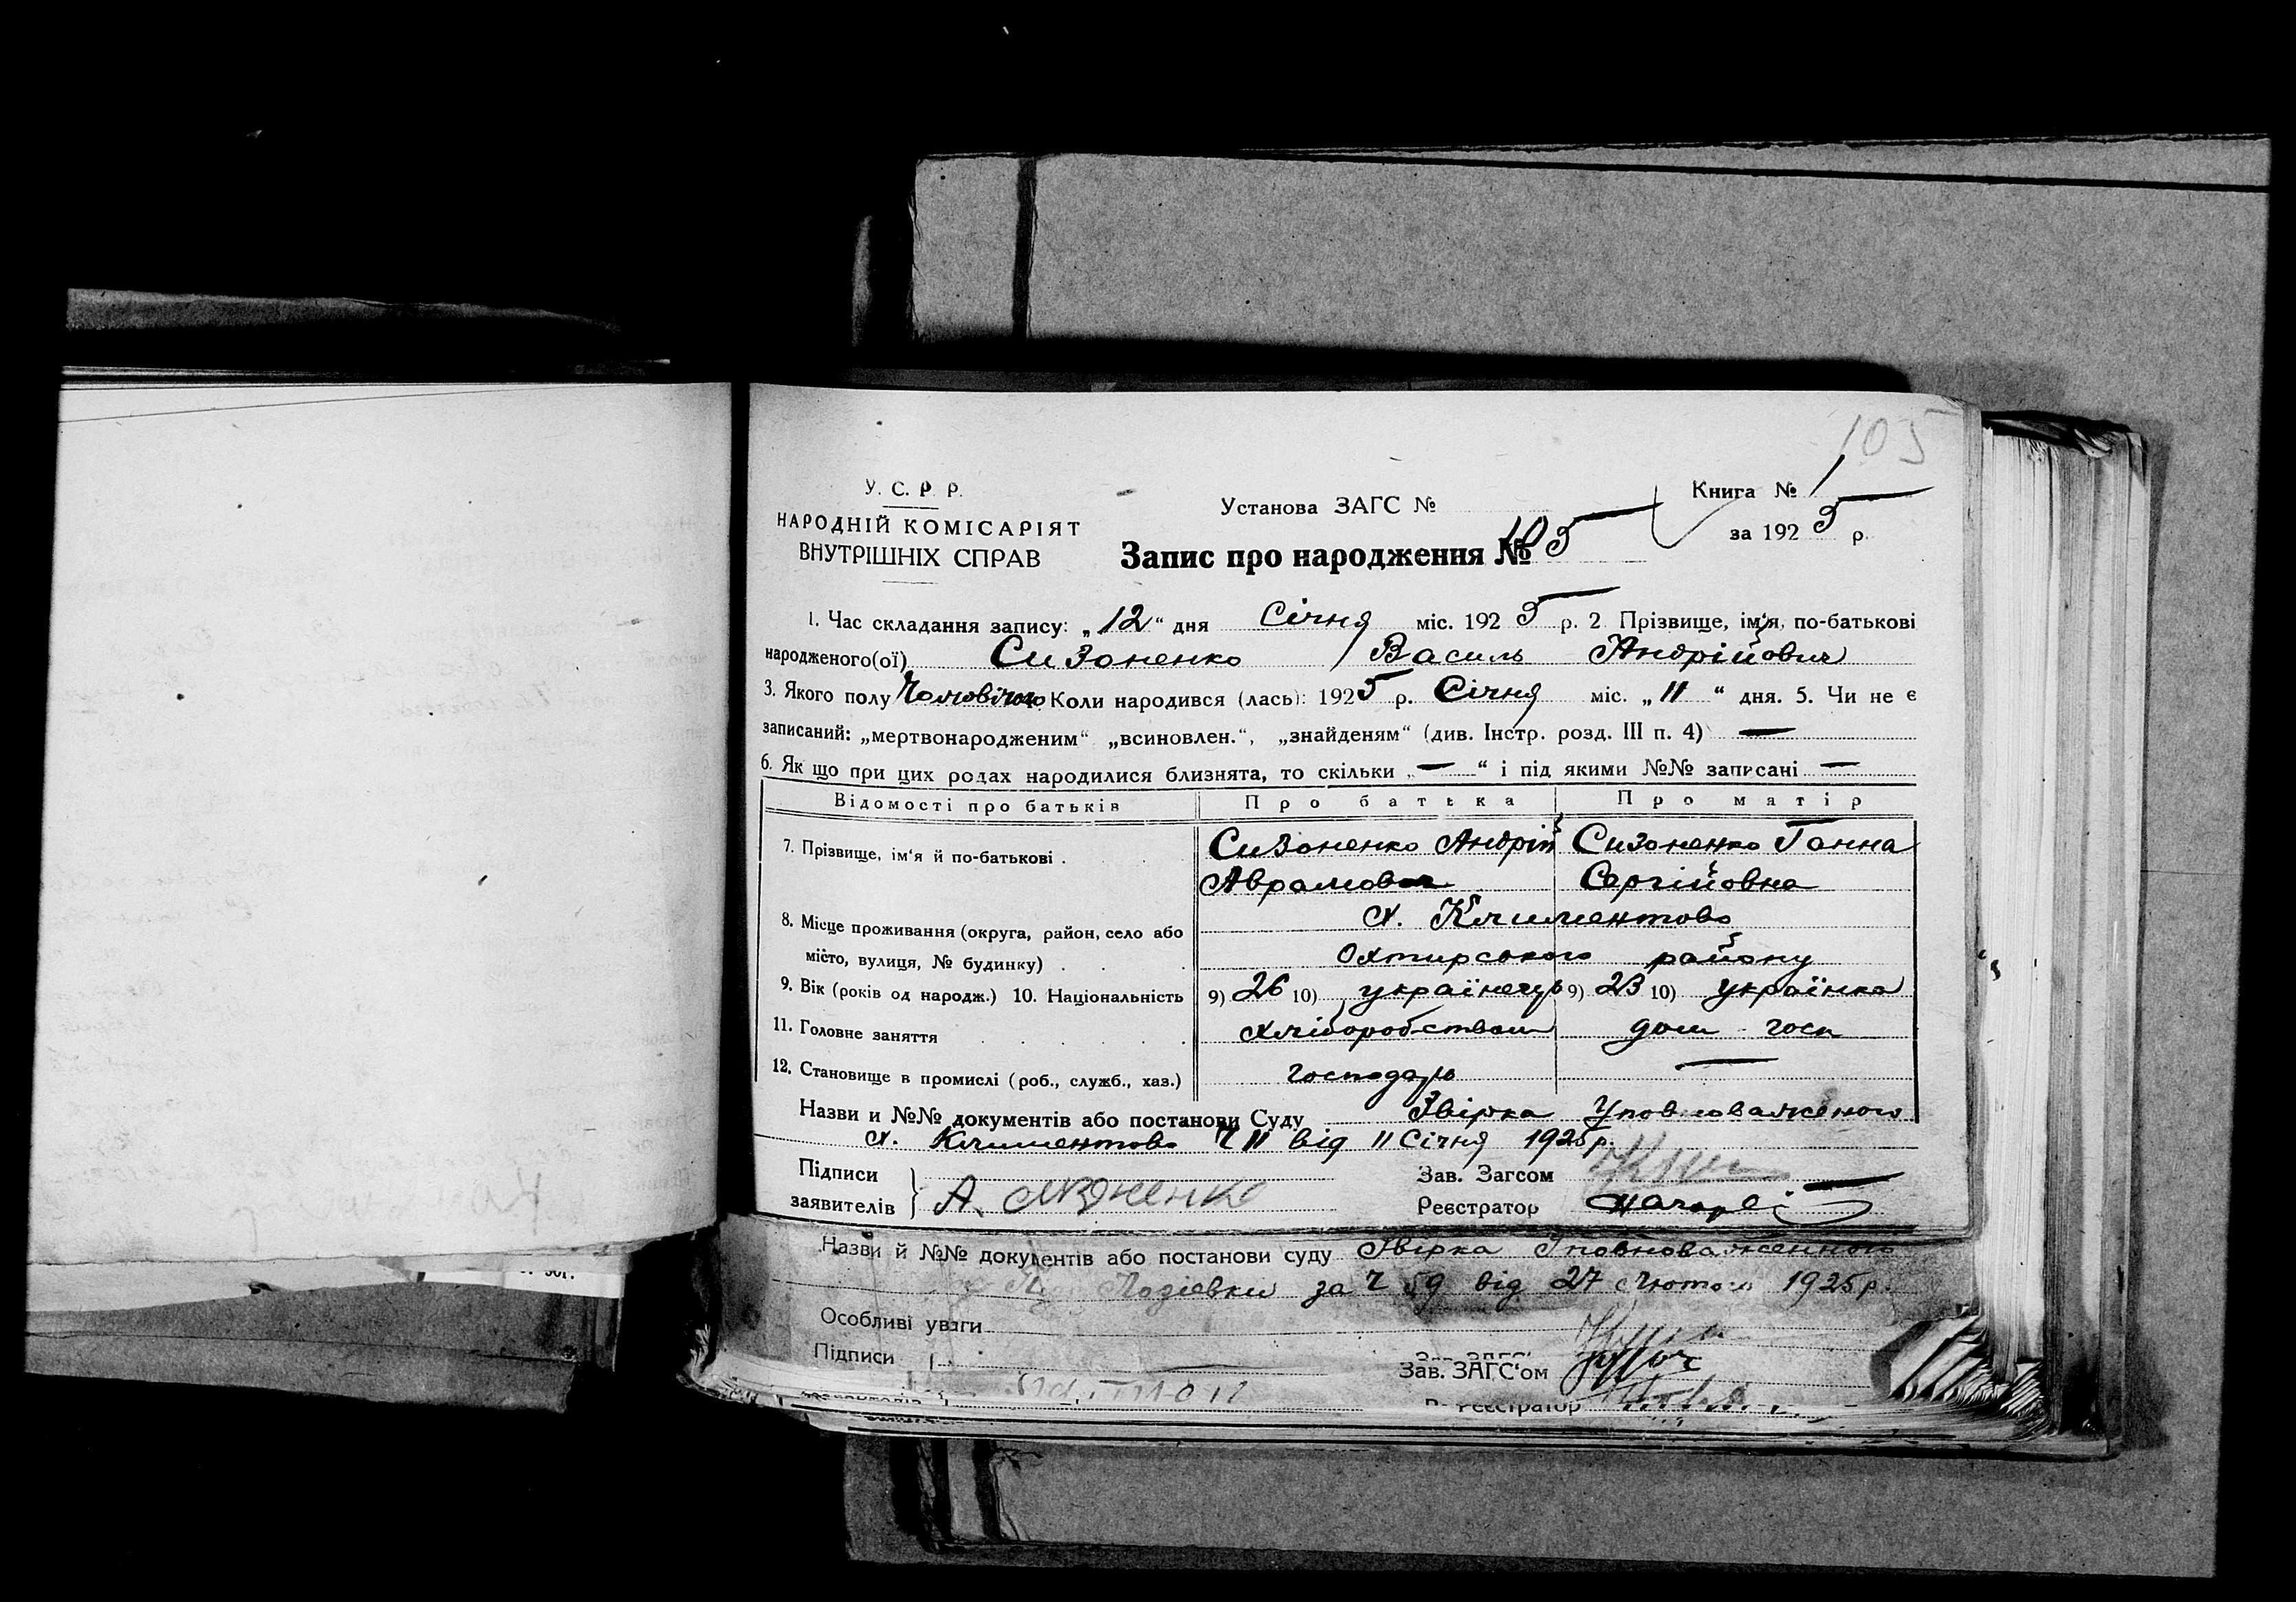 105
У. С. Р. Р.
НАРОДНІЙ КОМІСАРІЯТ
ВНУТРІШНІХ СПРАВ
Установа ЗАГС №
Книга № 1
за 1925 р.
Запис про народження № 105
1. Час складання запису: „12“ дня Січня міс. 1925 р. 2 Прізвище, ім‘я, по-батькові
народженого(ої) Сизоненко Василь Андрійович
3. Якого полу Чоловічого Коли народився (лась): 1925 р. Січня міс. „11“ дня. 5. Чи не є
записаний: „мертвонародженим“ „всиновлен.“, „знайденям“ (див. Інстр. розд. III п. 4) —
6. Як що при цих родах народилися близнята, то скільки „—“ і під якими №№ записані —
Відомості про батьків Про батька Про матір
7. Прізвище, ім‘я й по-батькові . Сизоненко Андрій Сизоненко Ганна
Аврамович Сергійовна
8. Місце проживання (округа, район, село або х. Климентово
місто, вулиця, № будинку) . Охтирського району
9. Вік (років од народж.) 10. Національність 9) 26 10) українець 9) 23 10) українка
11. Головне заняття хліборобством дом госп
12. Становище в промислі (роб., служб., хаз.) господарь —
Назви и №№ документів або постанови Суду Звірка Уповноваженого
х. Климентово Ч 11 від 11 Січня 1925 р.
Підписи
заявителів
А. Сизоненко
Зав. Загсом
Реєстратор
Назви й №№ документів або постанови суду Звірка Уповноваженного
за Ч 59 від 27 Лютого 1925 р.
Особливі уваги
Підписи
Зав. ЗАГС‘ом
Реєстратор